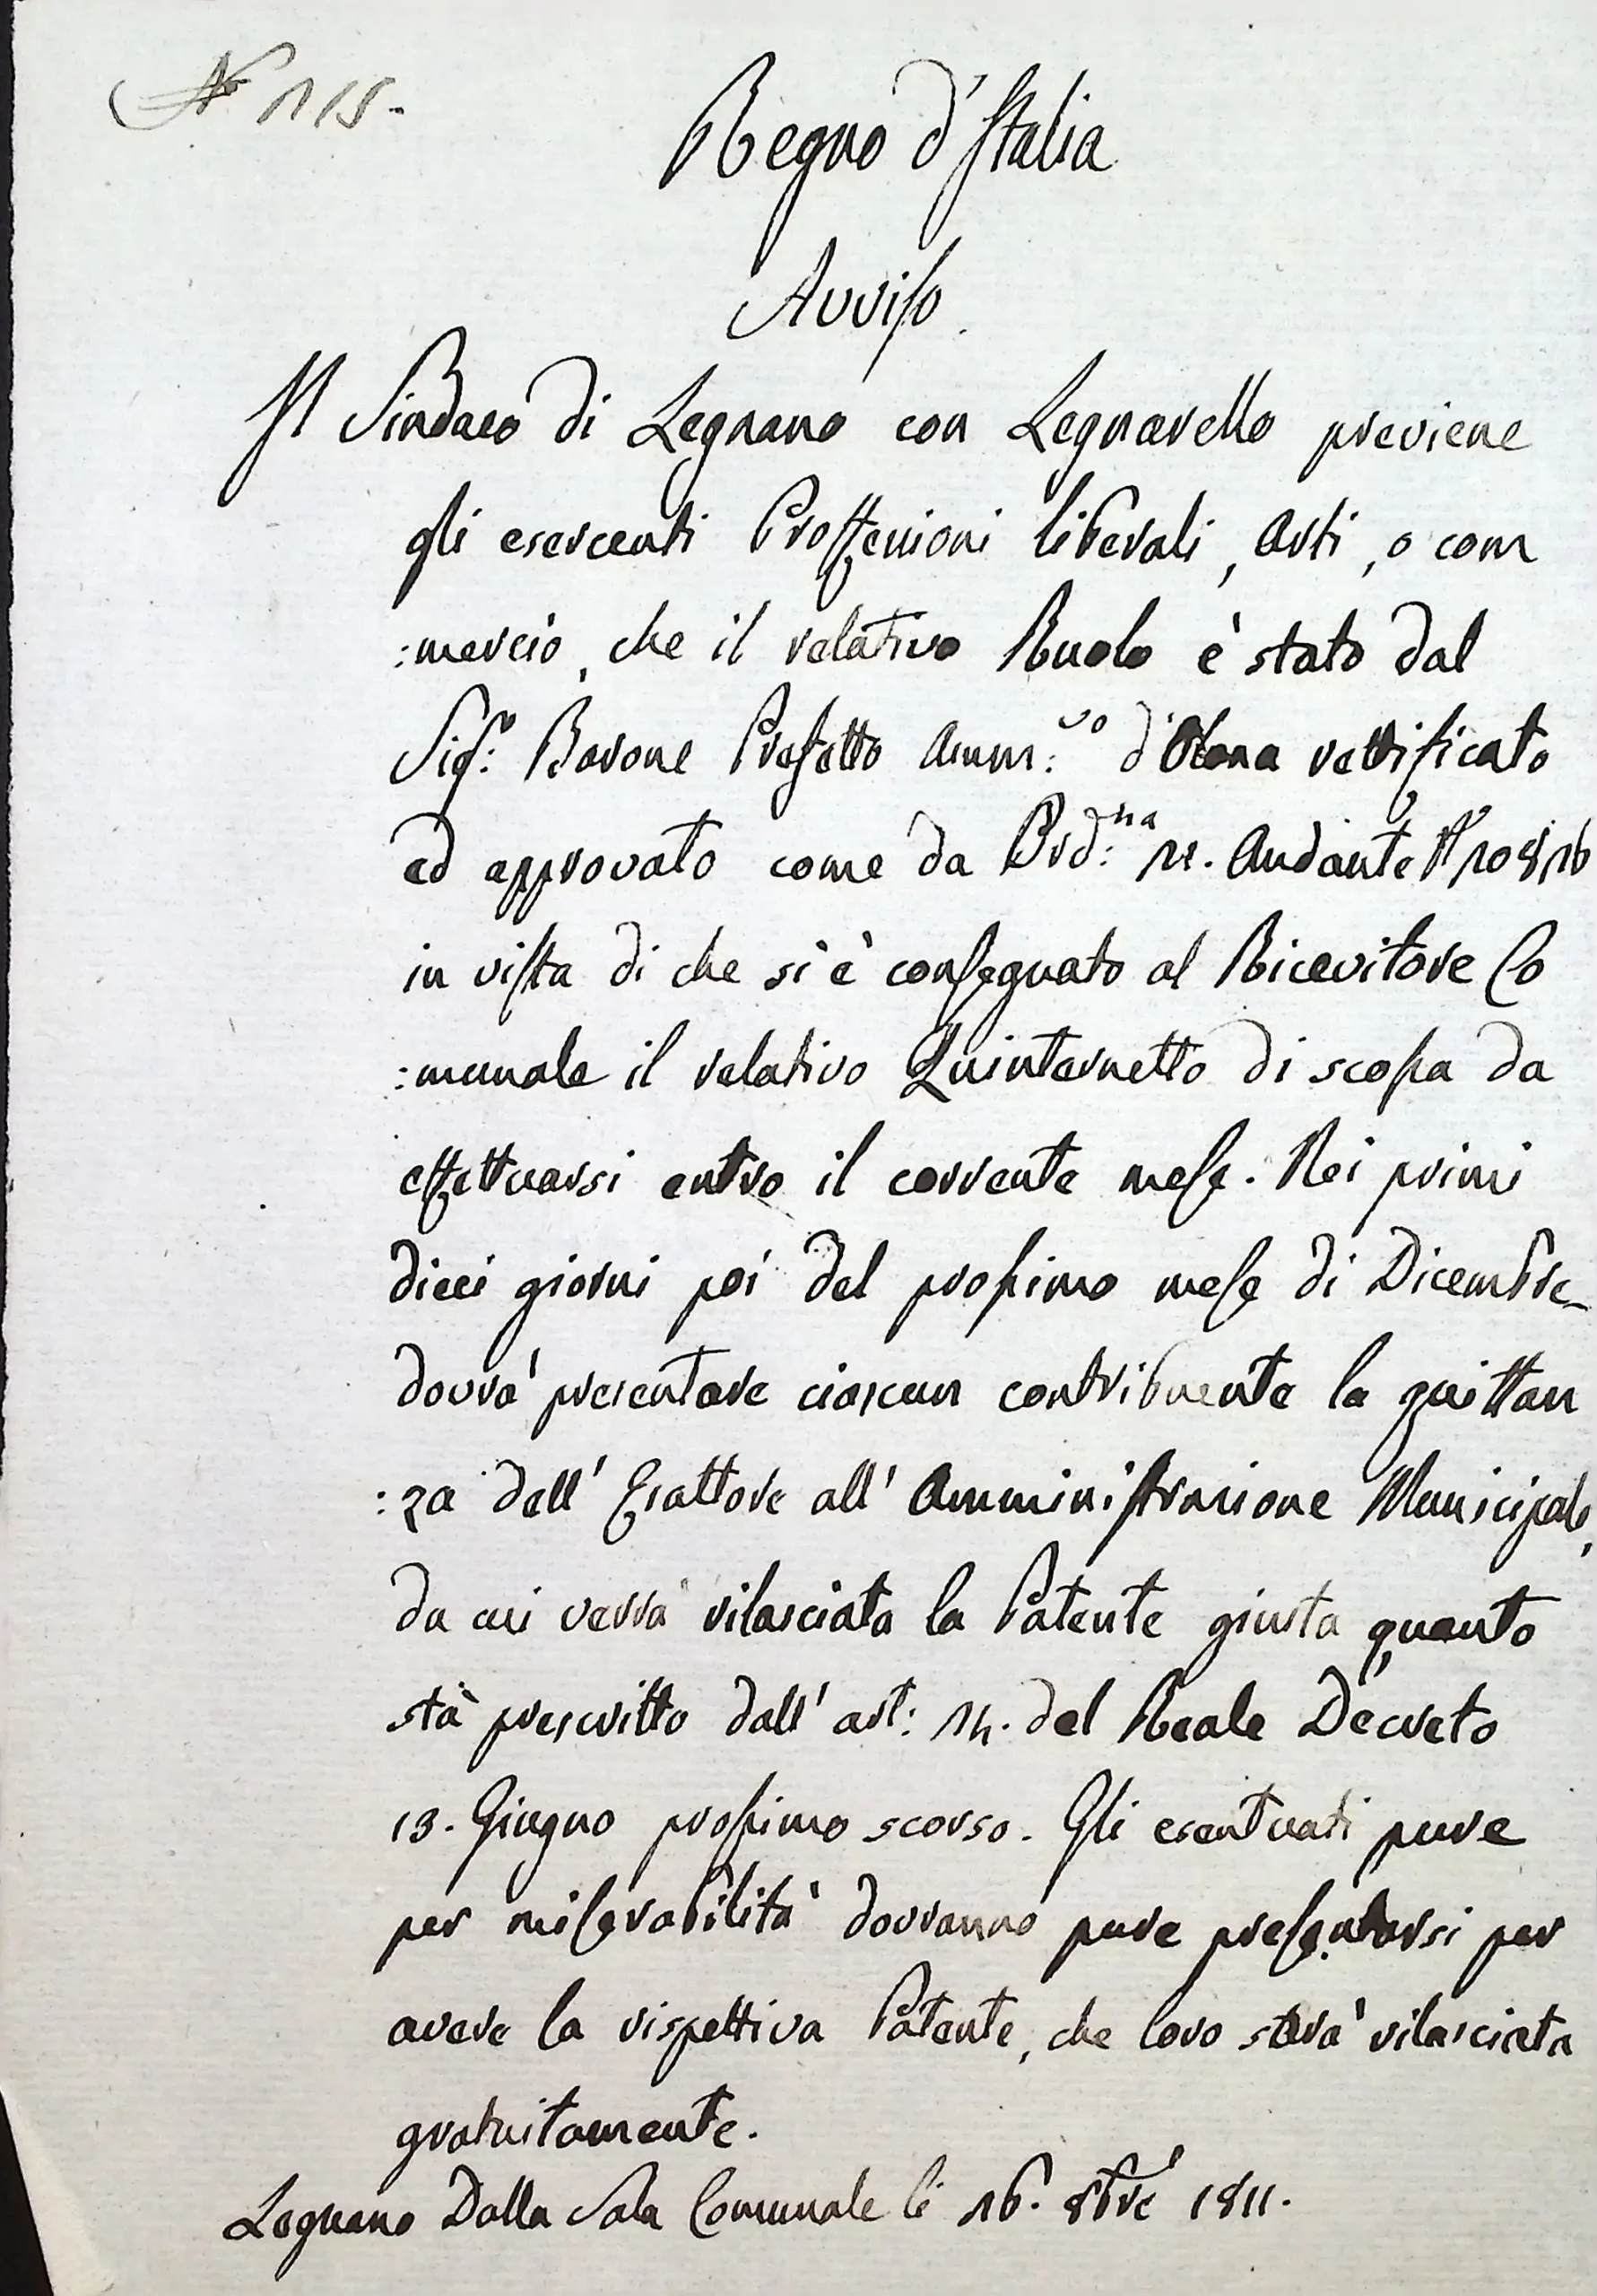 N.º 115.
Regno d'Italia
Avviso
Il Sindaco di Legnano con Legnarello previene
gli esercenti Proffessioni liberali, Arti, o com
:mercio, che il relativo Ruolo è stato dal
Sig.r Barone Prefetto Amm:vo d'Olona rettificato
ed approvato come da Ord:na 11. Andante N.º
in vista di che si è consegnato al Ricevitore Co
:munale il relativo Quinternetto di scossa da
effettuarsi entro il corrente mese. Nei primi
dieci giorni poi del prossimo mese di Dicembre
dovrà presentare ciascun contribuente la quittan
:za dell' Esattore all' Amministrazione Municipale,
da cui verrà rilasciata la Patente giusta quanto
stà prescritto dall' art: 14. del Reale Decreto
13. Giugno prossimo scorso. Gli esentuati pure
per miserabilità dovranno pure presentarsi per
avere la rispettiva Patente, che loro sarà rilasciata
gratuitamente.
Legnano Dalla Sala Comunale li 16. 1811.